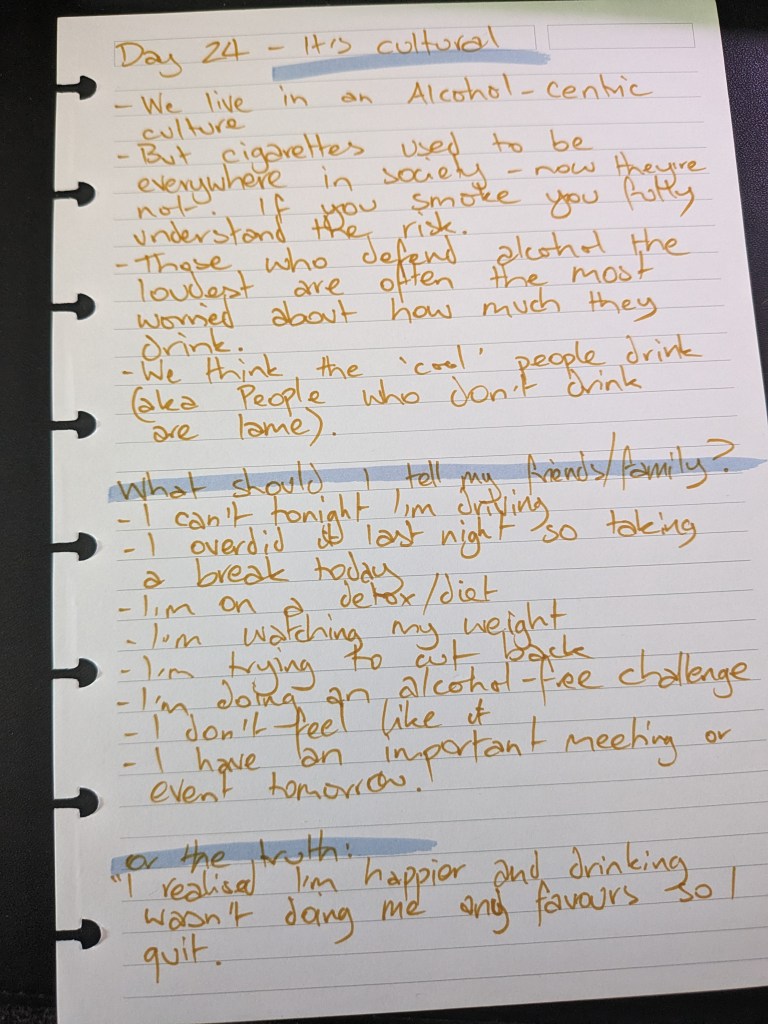 Day 24 - It's cultural
- We live in an Alcohol-centric
culture
- But cigarettes used to be
everywhere in society - now they're
not. If you smoke you fully
understand the risk.
- Those who defend alcohol the
loudest are often the most
worried about how much they
drink.
- We think the 'cool' people drink
(aka People who don't drink
are lame).
What should I tell my friends/family?
- I can't tonight I'm driving
- I overdid it last night so taking
a break today
- I'm on a detox/diet
- I'm watching my weight
- I'm trying to cut back
- I'm doing an alcohol-free challenge
- I don't feel like it
- I have an important meeting or
event tomorrow.
or the truth:
"I realised I'm happier and drinking
wasn't doing me any favours so I
quit.